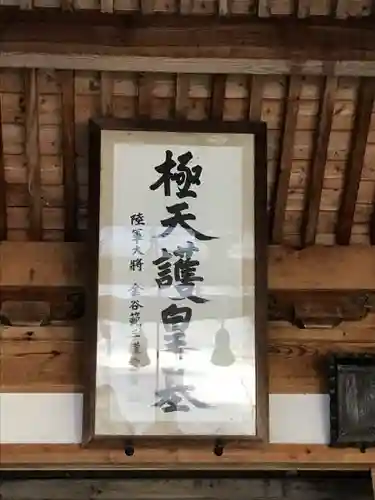 極天護皇基
陸軍大將 金谷範三書